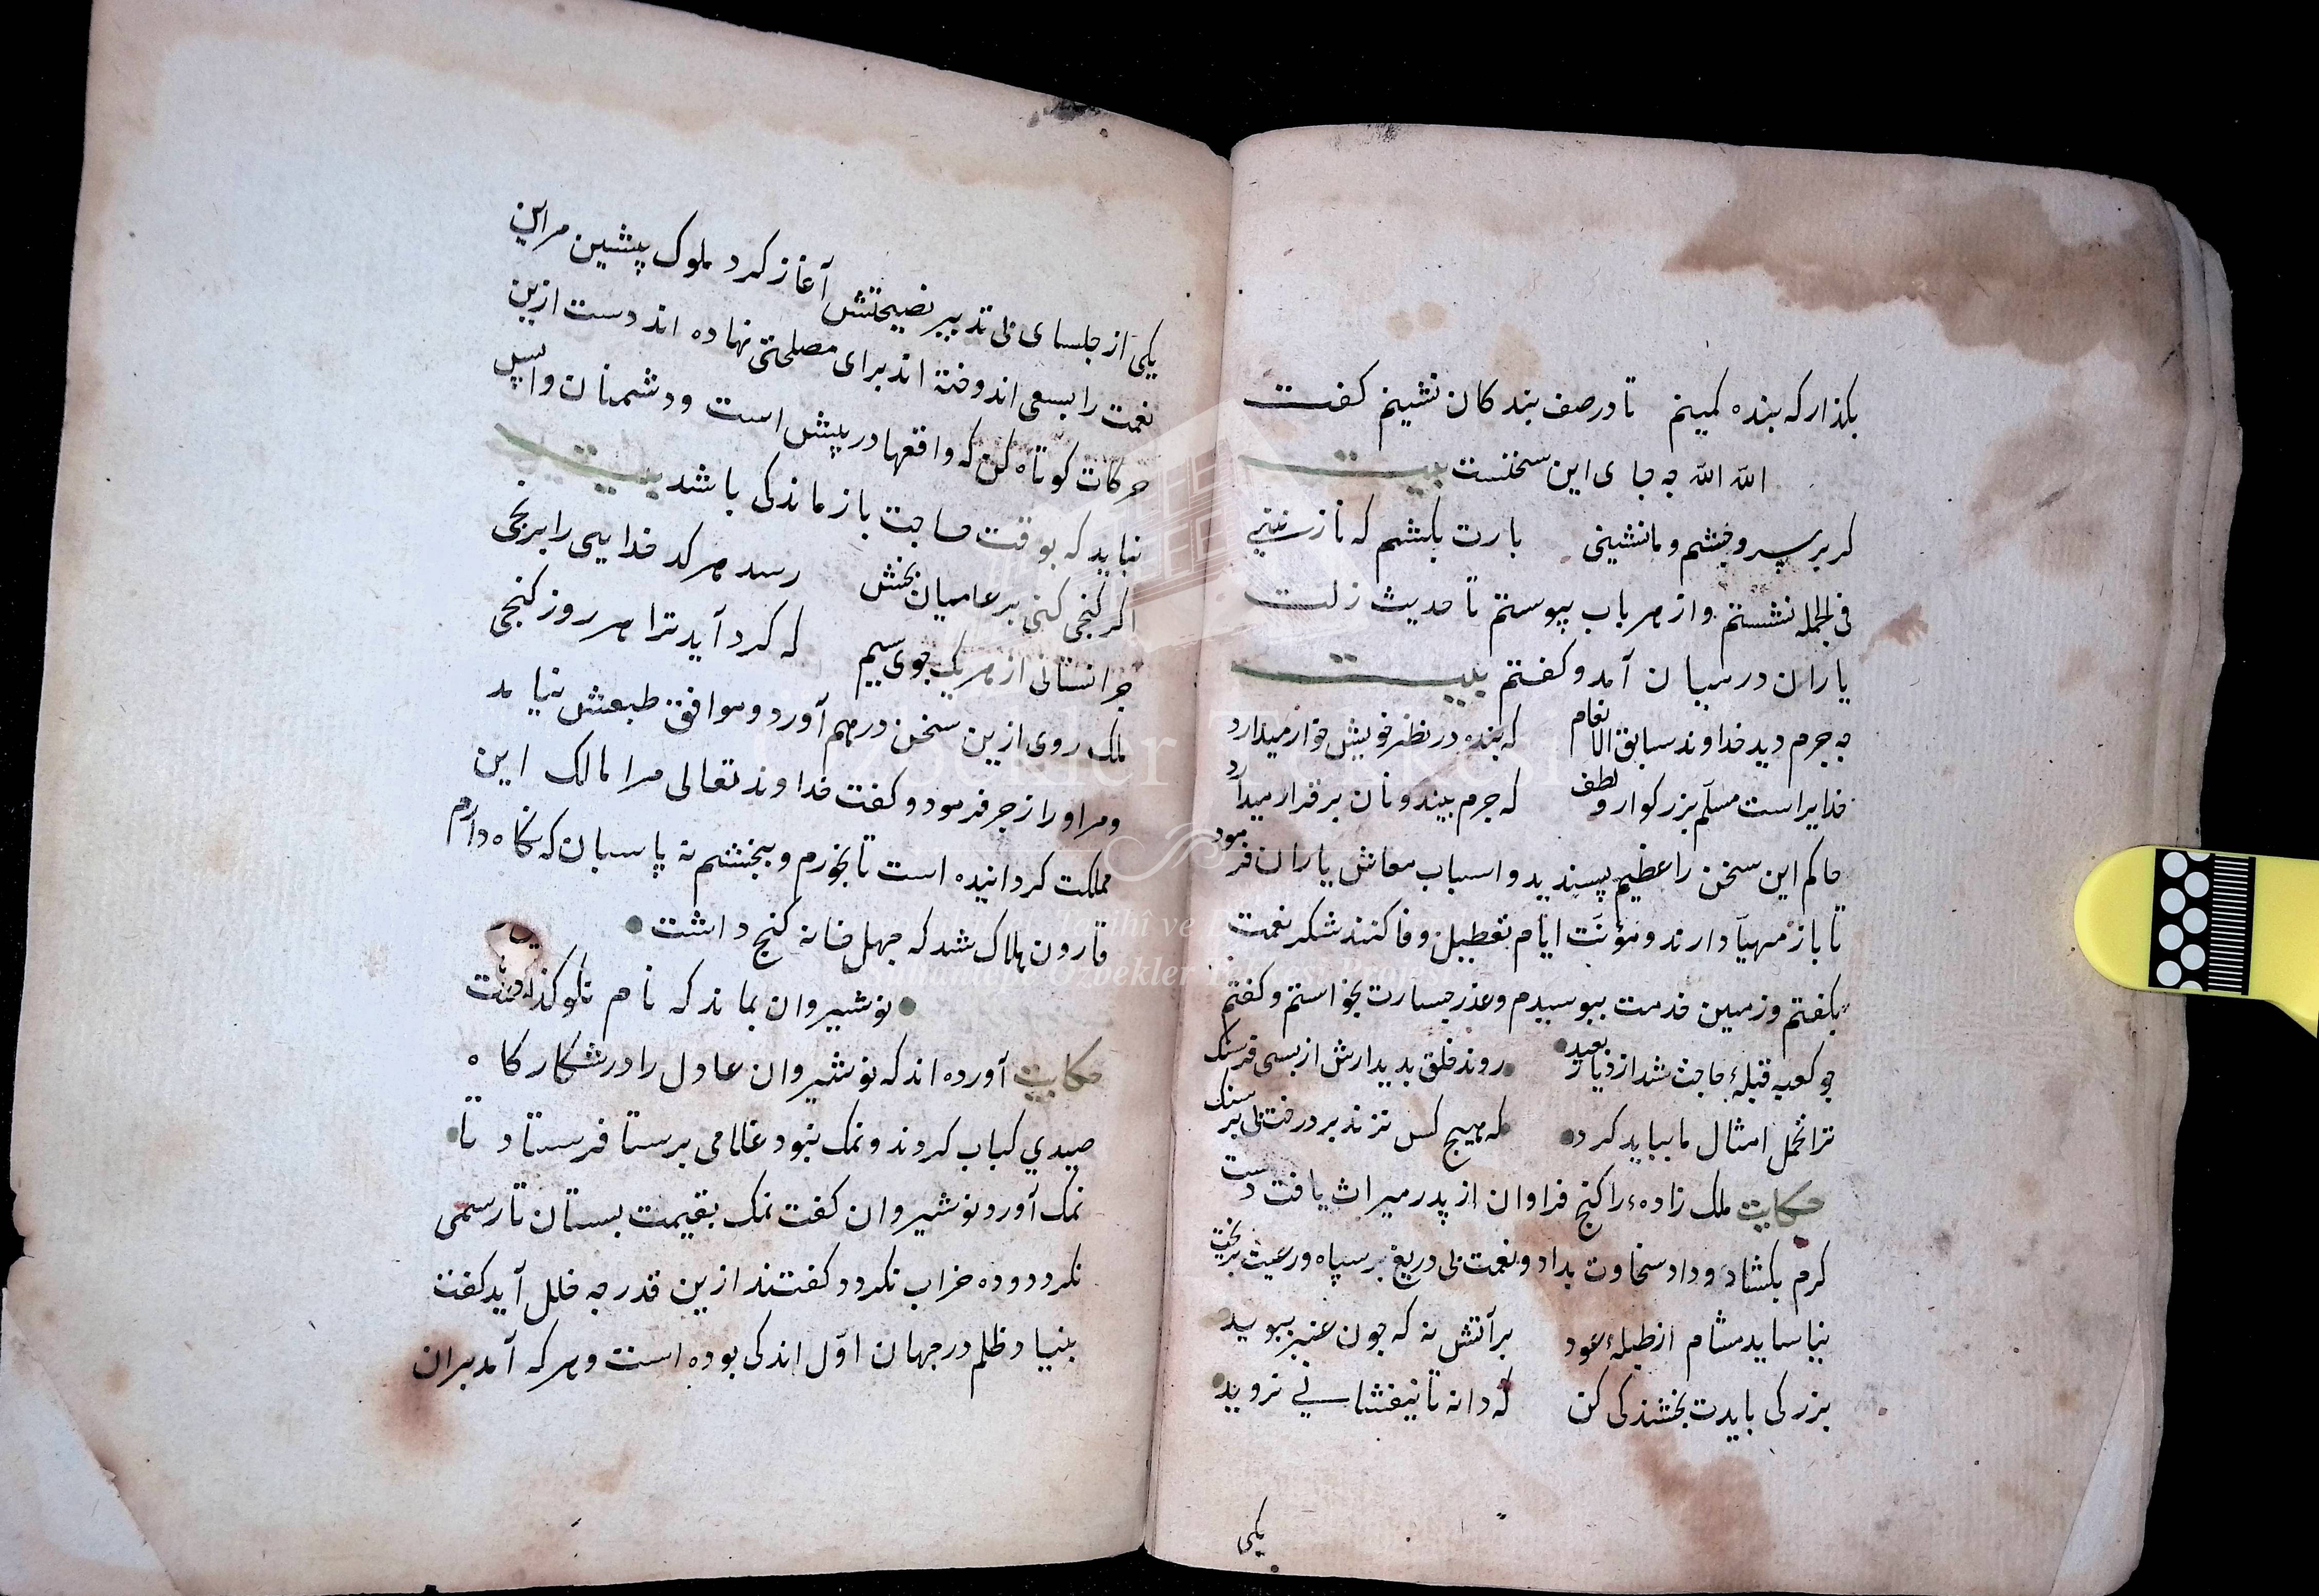 بکذار که بنده کمینم تا در صف بندکان نشینم کفت
الله الله چه جای این سخنست بیت
کر بر سر و چشم ما نشینی بارت بکشم که نازنینی
فی الجمله نشستم و از هر باب پیوستم تا حدیث زلت
یاران در میان آمد و کفتم بیت
چه جرم دید خداوند سابق الانعام که بنده در نظر خویش خوار میدارد
خدایراست مسلّم بزرکوار و لطف که جرم بیند و نان برقرار میدارد
حاکم این سخن را عظیم پسندید و اسباب معاش یاران فرمود
تا باز مهیّا دارند و مؤنت ایّام تعطیل وفا کنند شکر نعمت
بکفتم و زمین خدمت ببوسیدم و عذر جسارت بخواستم و کفتم
چو کعبه قبلهٔ حاجت شد از دیار بعید روند خلق بدیدارش از بسی فرسنک
ترا تحمل امثال ما بباید کرد که هیچ کس نزند بر درخت بی بر سنک
حکایت ملک زادهٔ را کنج فراوان از پدر میراث یافت دست
کرم بکشاد و داد سخاوت بداد و نعمت بی دریغ بر سپاه و رعیت بریخت
نیاساید مشام از طبلهٔ عود بر آتش نه که چون عنبر ببوید
بزرکی بایدت بخشندکی کن که دانه تا نیفشانی نروید
یکی
یکی از جلسای بی تدبیر نصیحتش آغاز کرد ملوک پیشین مر این
نعمت را بسعی اندوخته اند برای مصلحتی نهاده اند دست ازین
حرکات کوتاه کن که واقعها در پیش است و دشمنان واپس
نباید که بوقت حاجت باز ماندکی باشد بیت
اکر کنجی کنی بر عامیان بخش رسد هر کد خدایی را برنجی
چرا نستانی از هر یک جوی سیم که کرد آید ترا هر روز کنجی
ملک روی ازین سخن درهم آورد و موافق طبعش نیامد
و مر او را زجر فرمود و کفت خداوند تعالی مرا مالک این
مملکت کردانیده است تا بخورم و ببخشم نه پاسبان که نکاه دارم
قارون هلاک شد که چهل خانه کنج داشت
نوشیروان بماند که نام نکو کذاشت
حکایت آورده اند که نوشیروان عادل را در شکار کاه
صیدی کباب کردند و نمک نبود غلامی برستا فرستاد تا
نمک آورد نوشیروان کفت نمک بقیمت بستان تا رسمی
نکردد و ده خراب نکردد کفتند ازین قدر چه خلل آید کفت
بنیاد ظلم در جهان اوّل اندکی بوده است و هر که آمد بران